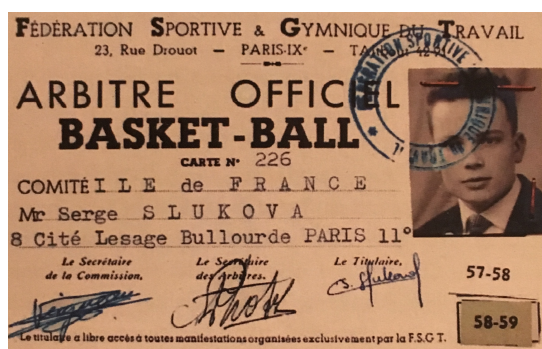 FÉDÉRATION SPORTIVE & GYMNIQUE DU TRAVAIL
23, Rue Drouot — PARIS-IXe —
ARBITRE OFFICIEL
BASKET-BALL
CARTE N° 226
COMITÉ ILE de FRANCE
Mr Serge SLUKOVA
8 Cité Lesage Bullourde PARIS 11°
Le Secrétaire de la Commission,
Le Secrétaire des Arbitres.
Le Titulaire,
S. Slukova
57-58
58-59
Le titulaire a libre accès à toutes manifestations organisées exclusivement par la F.S.G.T.